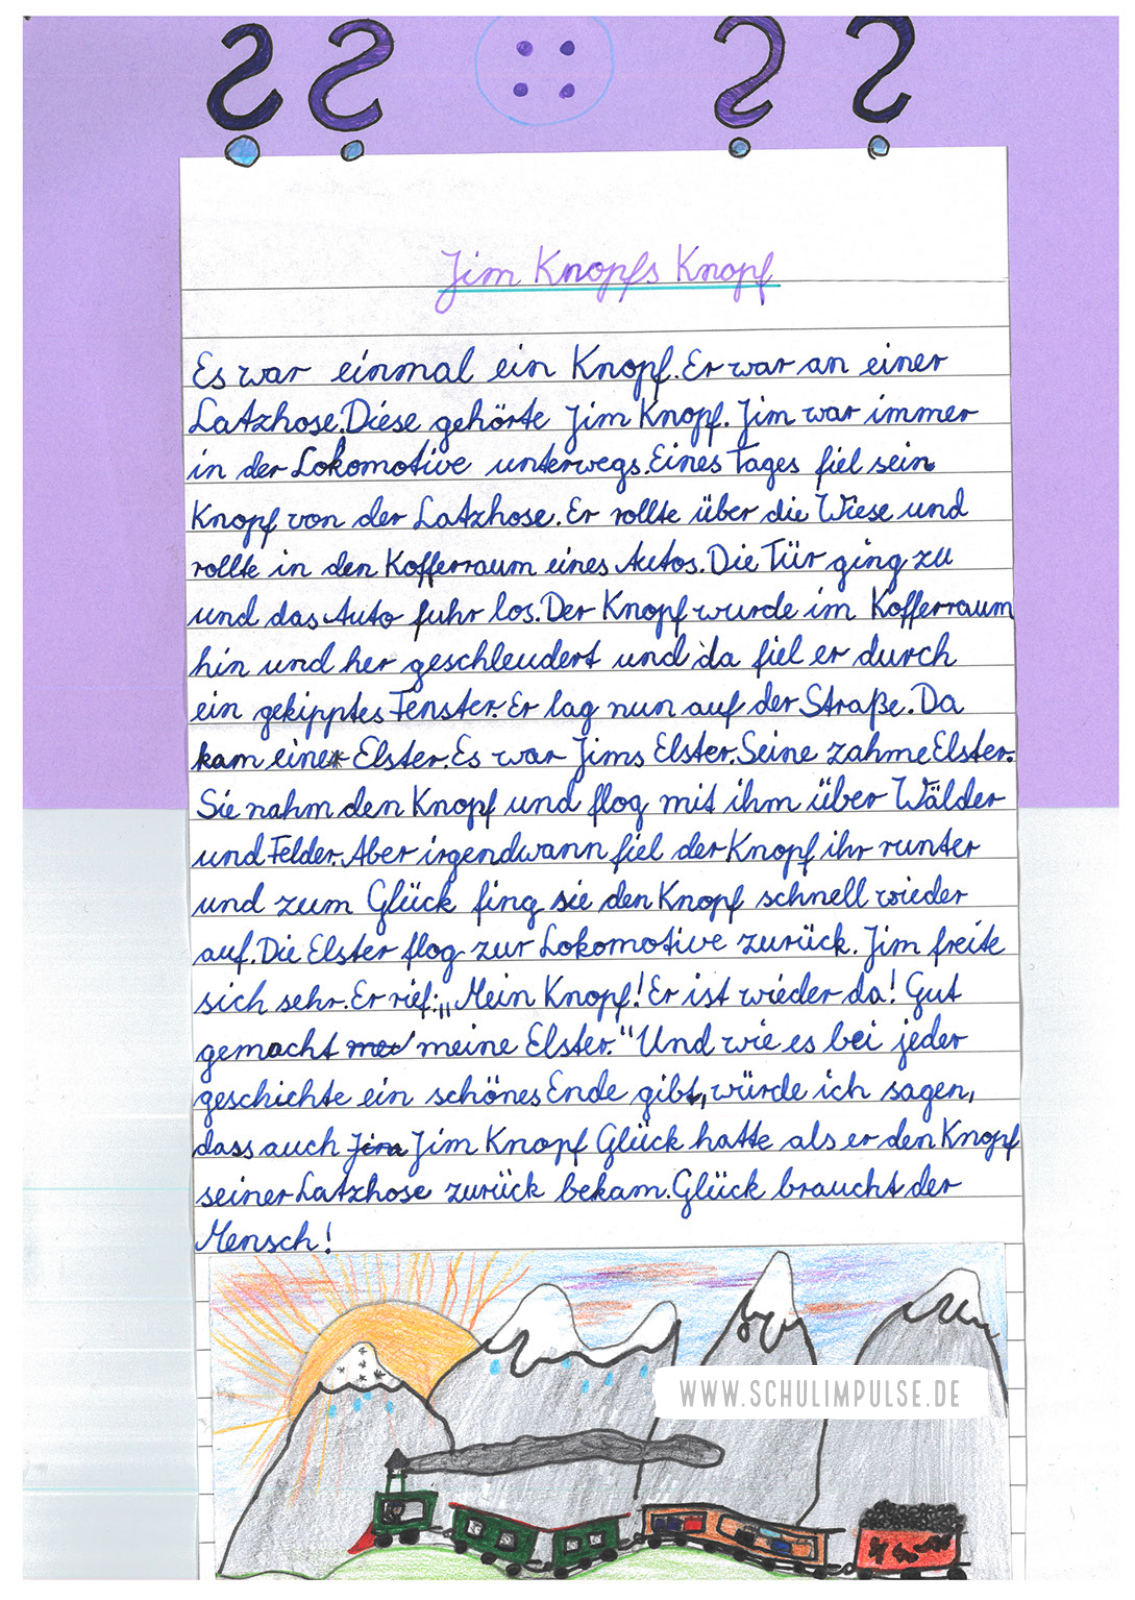 Jim Knopfs Knopf
Es war einmal ein Knopf. Er war an einer
Latzhose. Diese gehörte Jim Knopf. Jim war immer
in der Lokomotive unterwegs. Eines Tages fiel sein
Knopf von der Latzhose. Er rollte über die Wiese und
rollte in den Kofferraum eines Autos. Die Tür ging zu
und das Auto fuhr los. Der Knopf wurde im Kofferraum
hin und her geschleudert und da fiel er durch
ein gekipptes Fenster. Er lag nun auf der Straße. Da
kam eine Elster. Es war Jims Elster. Seine zahme Elster.
Sie nahm den Knopf und flog mit ihm über Wälder
und Felder. Aber irgendwann fiel der Knopf ihr runter
und zum Glück fing sie den Knopf schnell wieder
auf. Die Elster flog zur Lokomotive zurück. Jim freite
sich sehr. Er rief: „Mein Knopf! Er ist wieder da! Gut
gemacht meine Elster." Und wie es bei jeder
geschichte ein schönes Ende gibt, würde ich sagen,
dass auch Jim Knopf Glück hatte als er den Knopf
seiner Latzhose zurück bekam. Glück braucht der
Mensch!
WWW.SCHULIMPULSE.DE